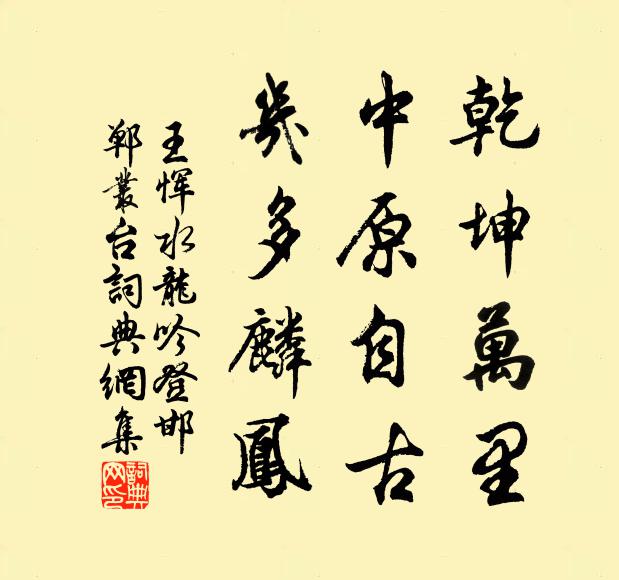 乾坤萬里
中原自古
幾多麟鳳
王惲水龍吟登邯
鄲叢台詞典網集
詞典网印